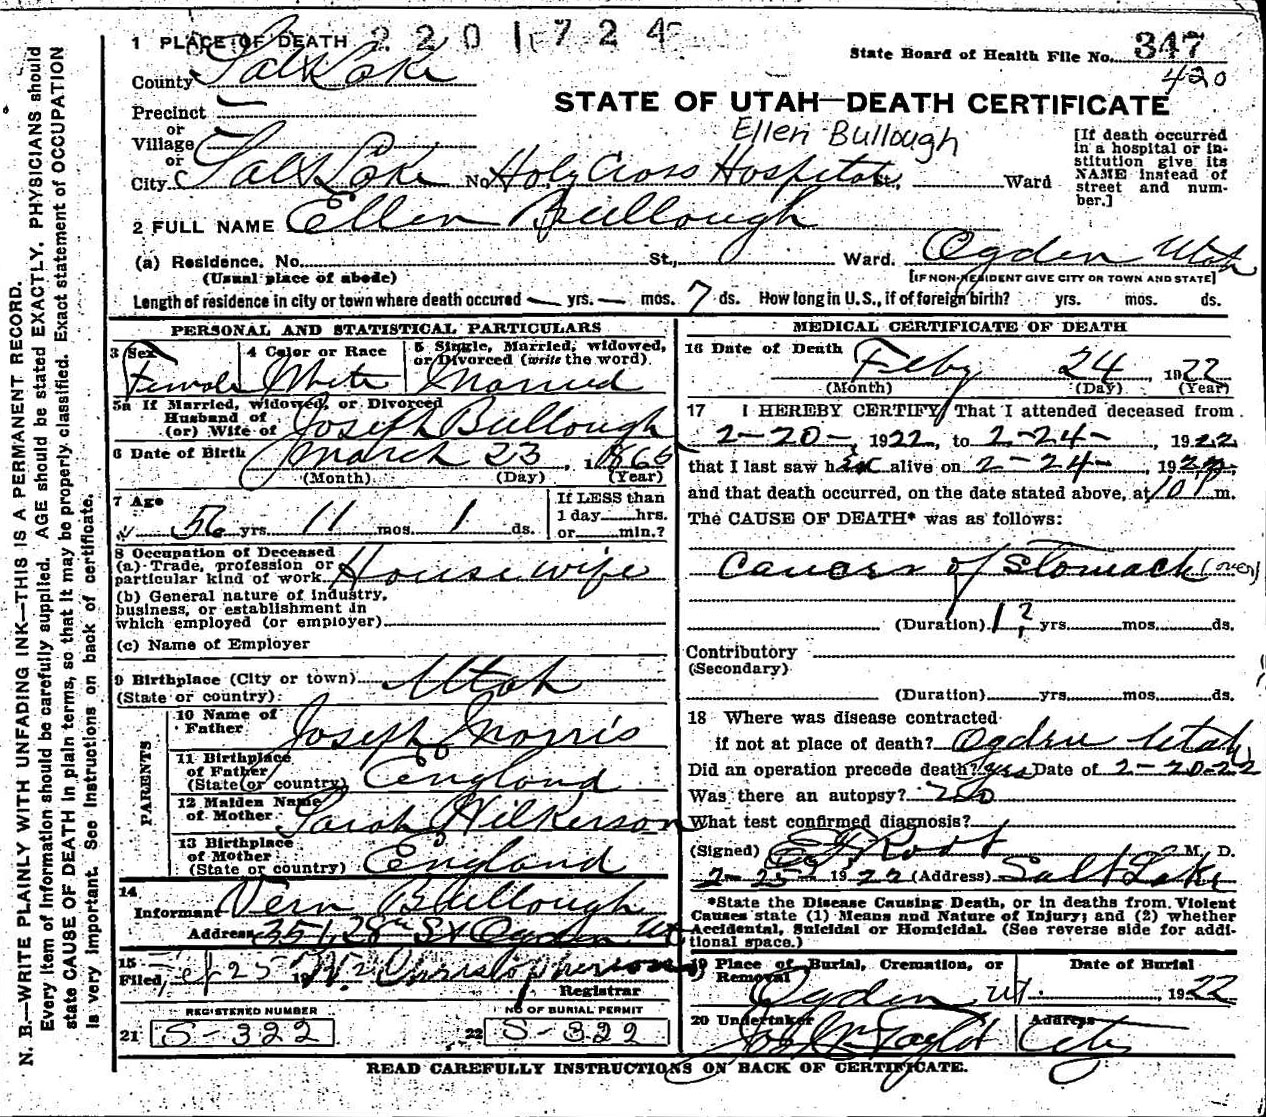 1 PLACE OF DEATH 2201724
State Board of Health File No. 347
420
County Salt Lake
STATE OF UTAH—DEATH CERTIFICATE
Precinct —
or
Village —
or
Ellen Bullough
[If death occurred in a hospital or institution give its NAME instead of street and number.]
City Salt Lake No. Holy Cross Hospital St., Ward
2 FULL NAME Ellen Bullough
(a) Residence. No. St., Ward. Ogden Utah
(Usual place of abode) [IF NON-RESIDENT GIVE CITY OR TOWN AND STATE]
Length of residence in city or town where death occured — yrs. — mos. 7 ds. How long in U.S., if of foreign birth? yrs. mos. ds.
PERSONAL AND STATISTICAL PARTICULARS
3 Sex Female
4 Color or Race White
5 Single, Married, widowed, or Divorced (write the word) Married
5a If Married, widowed, or Divorced
Husband of
(or) Wife of Joseph Bullough
6 Date of Birth March 23, 1865
(Month) (Day) (Year)
7 Age 56 yrs 11 mos 1 ds.
If LESS than
1 day hrs.
or min.?
8 Occupation of Deceased
(a) Trade, profession or
particular kind of work. Housewife
(b) General nature of industry,
business, or establishment in
which employed (or employer)
(c) Name of Employer
9 Birthplace (City or town) Utah
(State or country)
PARENTS
10 Name of
Father Joseph Morris
11 Birthplace
of Father
(State or country) England
12 Maiden Name
of Mother Sarah Wilkerson
13 Birthplace
of Mother
(State or country) England
14
Informant Vern Bullough
Address 351, 28th St Ogden Ut
15
Filed, Feb 25 19
Registrar
REGISTERED NUMBER
21 S-322
NO OF BURIAL PERMIT
22 S-322
MEDICAL CERTIFICATE OF DEATH
16 Date of Death Feby 24 1922
(Month) (Day) (Year)
17 I HEREBY CERTIFY, That I attended deceased from
2-20-, 1922, to 2-24-, 1922
that I last saw her alive on 2-24-, 1922,
and that death occurred, on the date stated above, at 10 P m.
The CAUSE OF DEATH* was as follows:
Cancer of Stomach (over)
(Duration) 1? yrs. mos. ds.
Contributory
(Secondary)
(Duration) yrs. mos. ds.
18 Where was disease contracted
if not at place of death? Ogden Utah
Did an operation precede death? yes Date of 2-20-22
Was there an autopsy? no
What test confirmed diagnosis?
(Signed) Root M. D.
2-25, 1922 (Address) Salt Lake
*State the Disease Causing Death, or in deaths from Violent
Causes state (1) Means and Nature of Injury; and (2) whether
Accidental, Suicidal or Homicidal. (See reverse side for addi-
tional space.)
19 Place of Burial, Cremation, or
Removal Ogden Ut.
Date of Burial
, 1922
20 Undertaker Taylor
Address City
READ CAREFULLY INSTRUCTIONS ON BACK OF CERTIFICATE.
N. B.—WRITE PLAINLY WITH UNFADING INK—THIS IS A PERMANENT RECORD.
Every item of information should be carefully supplied. AGE should be stated EXACTLY. PHYSICIANS should
state CAUSE OF DEATH in plain terms, so that it may be properly classified. Exact statement of OCCUPATION
is very important. See Instructions on back of certificate.